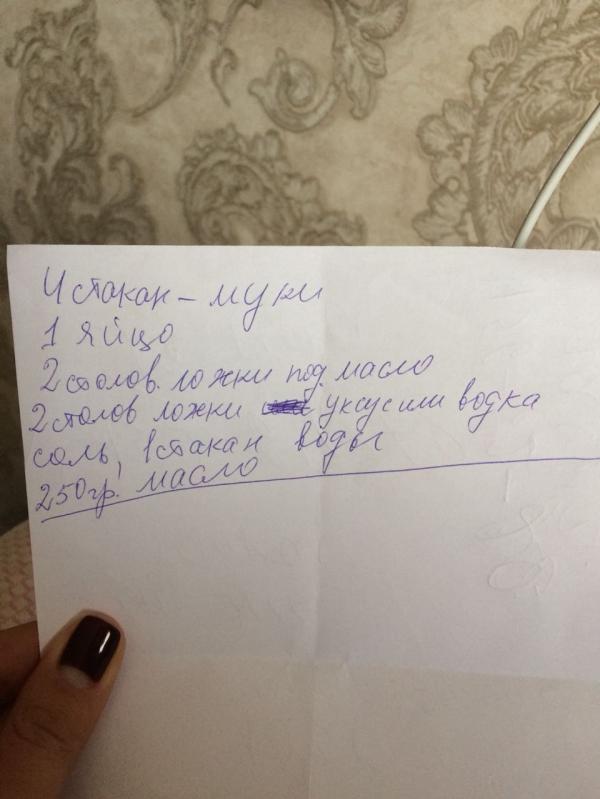 4 стакан – муки
1 яйцо
2 столов. ложки под. масло
2 столов ложки уксус или водка
соль, 1 стакан воды
250гр. масло